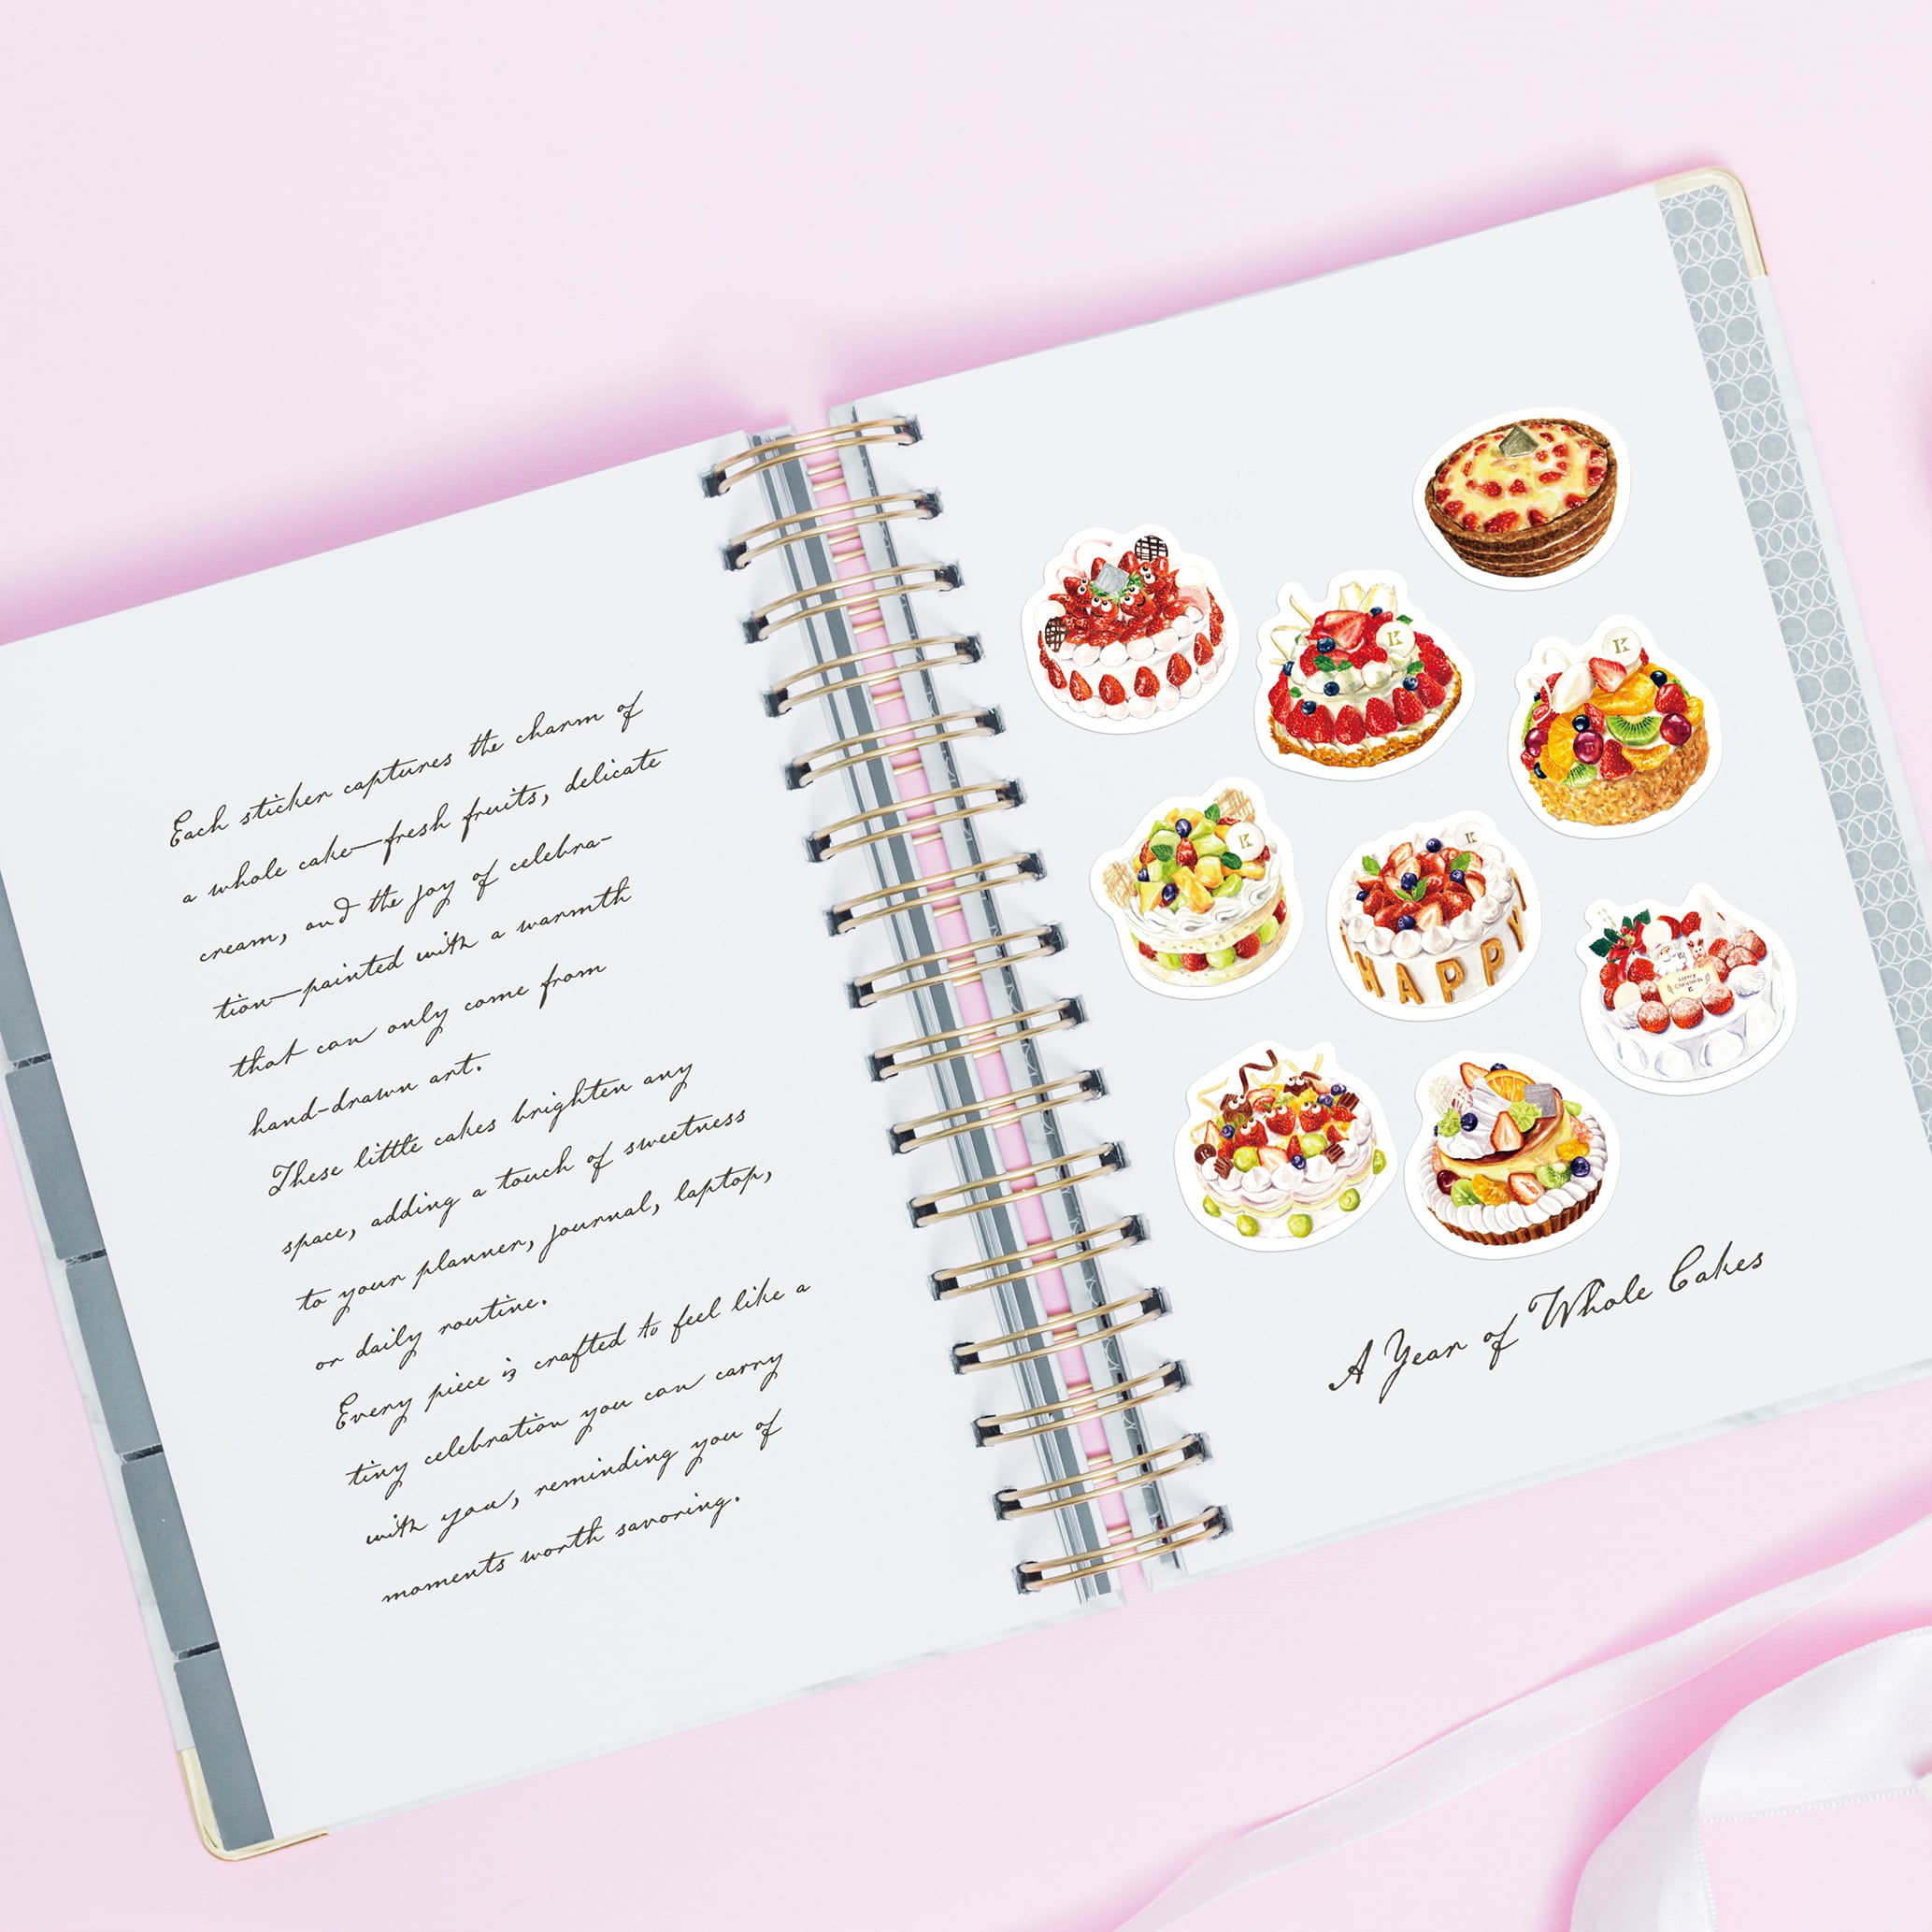 Each sticker captures the charm of
a whole cake—fresh fruits, delicate
cream, and the joy of celebra-
tion—painted with a warmth
that can only come from
hand-drawn art.
These little cakes brighten any
space, adding a touch of sweetness
to your planner, journal, laptop,
or daily routine.
Every piece is crafted to feel like a
tiny celebration you can carry
with you, reminding you of
moments worth savoring.
K
K
K
K
HAPPY
Merry
Christmas
K
A Year of Whole Cakes